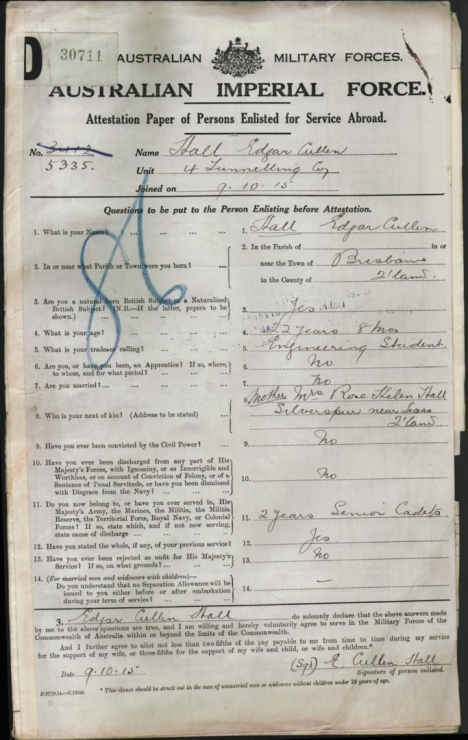 D
30711
AUSTRALIAN MILITARY FORCES.
AUSTRALIAN IMPERIAL FORCE.
Attestation Paper of Persons Enlisted for Service Abroad.
No. 3412 Name Hall Edgar Cullen
5335. Unit 4 Tunnelling Coy
Joined on 9.10.15
Questions to be put to the Person Enlisting before Attestation.
1. What is your Name? ... ... ... ... 1. Hall Edgar Cullen
2. In or near what Parish or Town were you born? ... 2. In the Parish of in or
near the Town of Brisbane
in the County of Q'land.
3. Are you a natural born British Subject or a Naturalized
British Subject? (N.B.—If the latter, papers to be
shown.) 3. Yes
4. What is your age? ... ... ... ... 4. 22 years 8 mos
5. What is your trade or calling? ... ... ... 5. Engineering Student
6. Are you, or have you been, an Apprentice? If so, where,
to whom, and for what period? ... ... ... 6. No
7. Are you married? ... ... ... ... 7. No
8. Who is your next of kin? (Address to be stated) ... 8. Mother Mrs Rose Helen Hall
Silverspur near
Q'land
9. Have you ever been convicted by the Civil Power? ... 9. No
10. Have you ever been discharged from any part of His
Majesty's Forces, with Ignominy, or as Incorrigible and
Worthless, or on account of Conviction of Felony, or of a
Sentence of Penal Servitude, or have you been dismissed
with Disgrace from the Navy? ... ... ... 10. No
11. Do you now belong to, or have you ever served in, His
Majesty's Army, the Marines, the Militia, the Militia
Reserve, the Territorial Force, Royal Navy, or Colonial
Forces? If so, state which, and if not now serving,
state cause of discharge ... ... ... 11. 2 years Senior Cadets
12. Have you stated the whole, if any, of your previous service? 12. Yes
13. Have you ever been rejected as unfit for His Majesty's
Service? If so, on what grounds? ... ... ... 13. No
14. (For married men and widowers with children)—
Do you understand that no Separation Allowance will be
issued to you either before or after embarkation
during your term of service? ... ... ... 14. —
I, Edgar Cullen Hall do solemnly declare that the above answers made
by me to the above questions are true, and I am willing and hereby voluntarily agree to serve in the Military Forces of the
Commonwealth of Australia within or beyond the limits of the Commonwealth.
And I further agree to allot not less than two-fifths of the pay payable to me from time to time during my service
for the support of my wife, or three-fifths for the support of my wife and child, or wife and children.*
Date 9.10.15 (Sgd) E. Cullen Hall
Signature of person enlisted.
* This clause should be struck out in the case of unmarried men or widowers without children under 18 years of age.